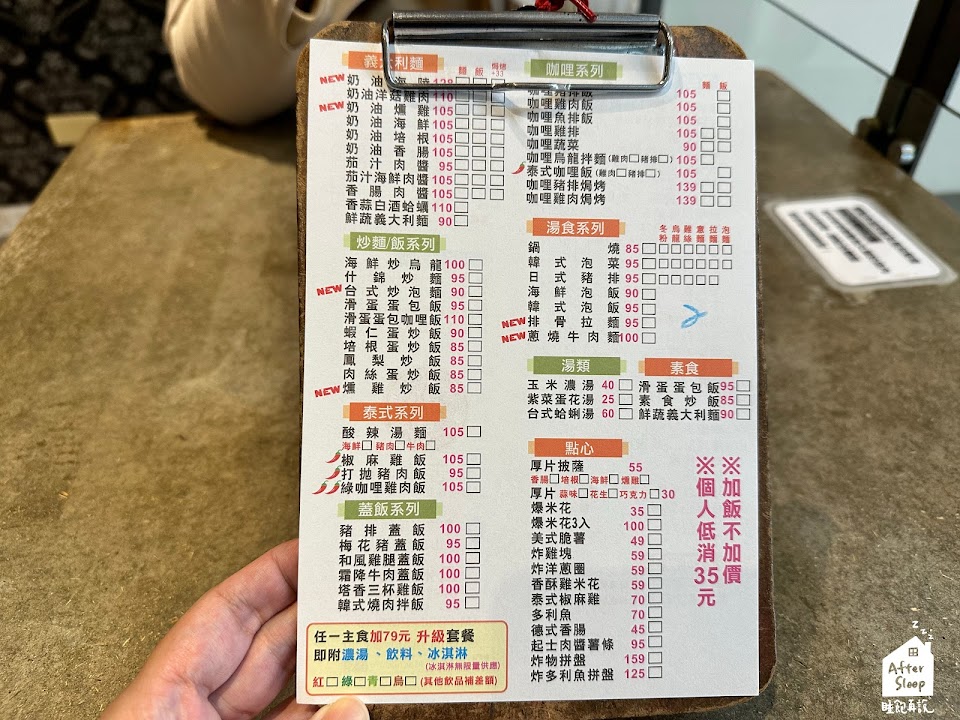 義大利麵
麵 飯 焗烤+33
NEW 奶油海陸 138
奶油洋菇雞肉 110
NEW 奶油燻雞 105
奶油海鮮 105
奶油培根 105
奶油香腸 105
茄汁肉醬 95
茄汁海鮮肉醬 105
香腸肉醬 105
香蒜白酒蛤蠣 110
鮮蔬義大利麵 90
炒麵/飯系列
海鮮炒烏龍 100
什錦炒麵 95
NEW 台式炒泡麵 90
滑蛋蛋包飯 95
滑蛋蛋包咖哩飯 110
蝦仁蛋炒飯 90
培根蛋炒飯 85
鳳梨炒飯 85
肉絲蛋炒飯 85
NEW 燻雞炒飯 85
泰式系列
酸辣湯麵 105
海鮮 豬肉 牛肉
椒麻雞飯 105
打拋豬肉飯 95
綠咖哩雞肉飯 105
蓋飯系列
豬排蓋飯 100
梅花豬蓋飯 95
和風雞腿蓋飯 100
霜降牛肉蓋飯 100
塔香三杯雞飯 100
韓式燒肉拌飯 95
任一主食加79元 升級套餐
即附濃湯、飲料、冰淇淋
(冰淇淋無限量供應)
紅 綠 青 烏 (其他飲品補差額)
咖哩系列
麵 飯
咖哩豬排飯 105
咖哩雞肉飯 105
咖哩魚排飯 105
咖哩雞排 105
咖哩蔬菜 90
咖哩烏龍拌麵(雞肉 豬排) 105
泰式咖哩飯(雞肉 豬排) 105
咖哩豬排焗烤 139
咖哩雞肉焗烤 139
湯食系列
冬粉 烏龍 雞絲 意麵 拉麵 泡麵
鍋燒 85
韓式泡菜 95
日式豬排 95
海鮮泡飯 90
韓式泡飯 95
NEW 排骨拉麵 95
NEW 蔥燒牛肉麵 100
2
湯類
玉米濃湯 40
紫菜蛋花湯 25
台式蛤蜊湯 60
素食
滑蛋蛋包飯 95
素食炒飯 85
鮮蔬義大利麵 90
點心
厚片披薩 55
香腸 培根 海鮮 燻雞
厚片 蒜味 花生 巧克力 30
爆米花 35
爆米花3入 100
美式脆薯 49
炸雞塊 59
炸洋蔥圈 59
香酥雞米花 59
泰式椒麻雞 70
多利魚 70
德式香腸 45
起士肉醬薯條 95
炸物拼盤 159
炸多利魚拼盤 125
※加飯不加價
※個人低消35元
zzz
After
Sleep
睡飽再說